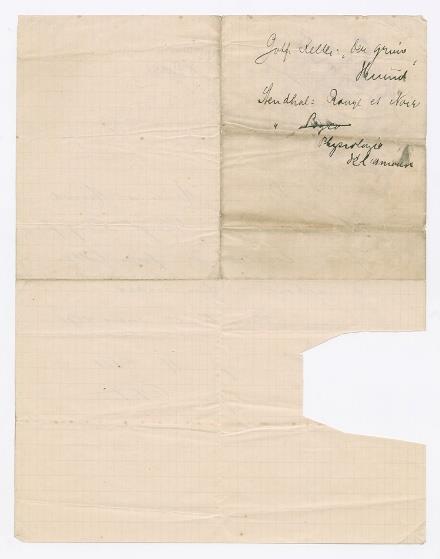 Gottf. Keller: "Der grüne
Heinrich
Stendhal: Rouge et Noir
"
Physiologie
de l'amour